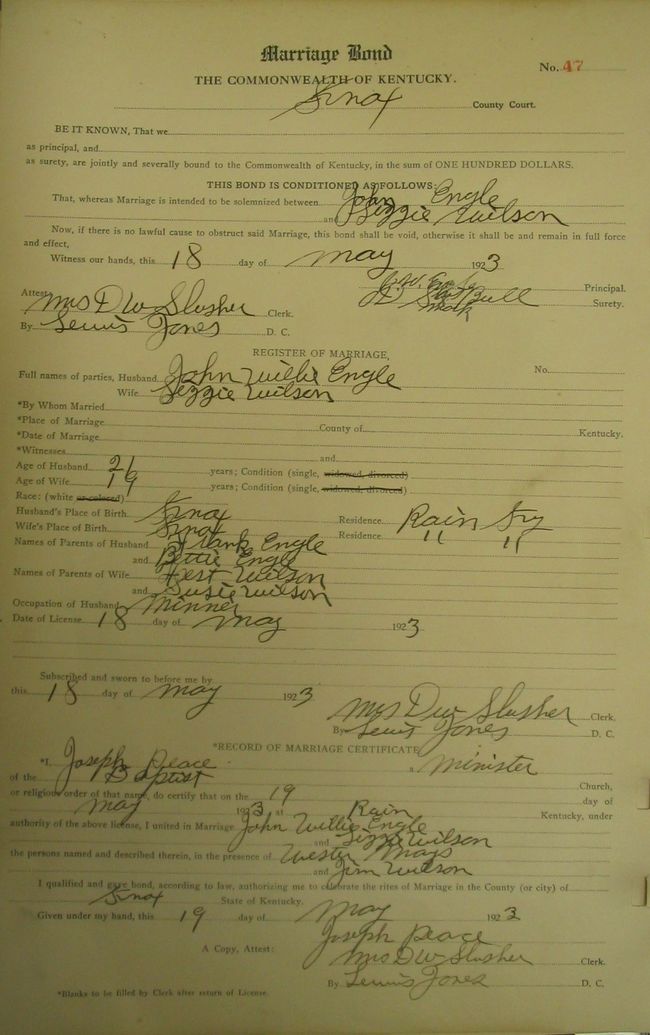 Marriage Bond
No. 47
THE COMMONWEALTH OF KENTUCKY.
Knox County Court.
BE IT KNOWN, That we
as principal, and
as surety, are jointly and severally bound to the Commonwealth of Kentucky, in the sum of ONE HUNDRED DOLLARS.
THIS BOND IS CONDITIONED AS FOLLOWS:
That, whereas Marriage is intended to be solemnized between John Engle
and Lizzie Wilson
Now, if there is no lawful cause to obstruct said Marriage, this bond shall be void, otherwise it shall be and remain in full force
and effect,
Witness our hands, this 18 day of May 1923
Principal.
Bull Surety.
mark
Attest Mrs D W Slusher Clerk.
By Lewis Jones D. C.
REGISTER OF MARRIAGE,
Full names of parties, Husband John Willie Engle No.
Wife Lizzie Wilson
*By Whom Married
*Place of Marriage County of Kentucky.
*Date of Marriage
*Witnesses and
Age of Husband 21 years; Condition (single, widowed, divorced)
Age of Wife 19 years; Condition (single, widowed, divorced)
Race: (white or colored)
Husband's Place of Birth Knox Residence Rain Ky
Wife's Place of Birth Knox Residence " "
Names of Parents of Husband Frank Engle
and Bettie Engle
Names of Parents of Wife Wilson
and Susie Wilson
Occupation of Husband Minner
Date of License 18 day of May 1923
Subscribed and sworn to before me by
this 18 day of May 1923
Mrs D W Slusher Clerk.
By Lewis Jones D. C.
*RECORD OF MARRIAGE CERTIFICATE
*I, Joseph Peace a Minister
of the Baptist Church,
or religious order of that name, do certify that on the 19 day of
May 1923 at Rain Kentucky, under
authority of the above license, I united in Marriage John Willie Engle
and Lizzie Wilson
the persons named and described therein, in the presence of Wester Mays
and Jim Wilson
I qualified and gave bond, according to law, authorizing me to celebrate the rites of Marriage in the County (or city) of
Knox State of Kentucky.
Given under my hand, this 19 day of May 1923
Joseph Peace
A Copy, Attest: Mrs D W Slusher Clerk.
By Lewis Jones D. C.
*Blanks to be filled by Clerk after return of License.